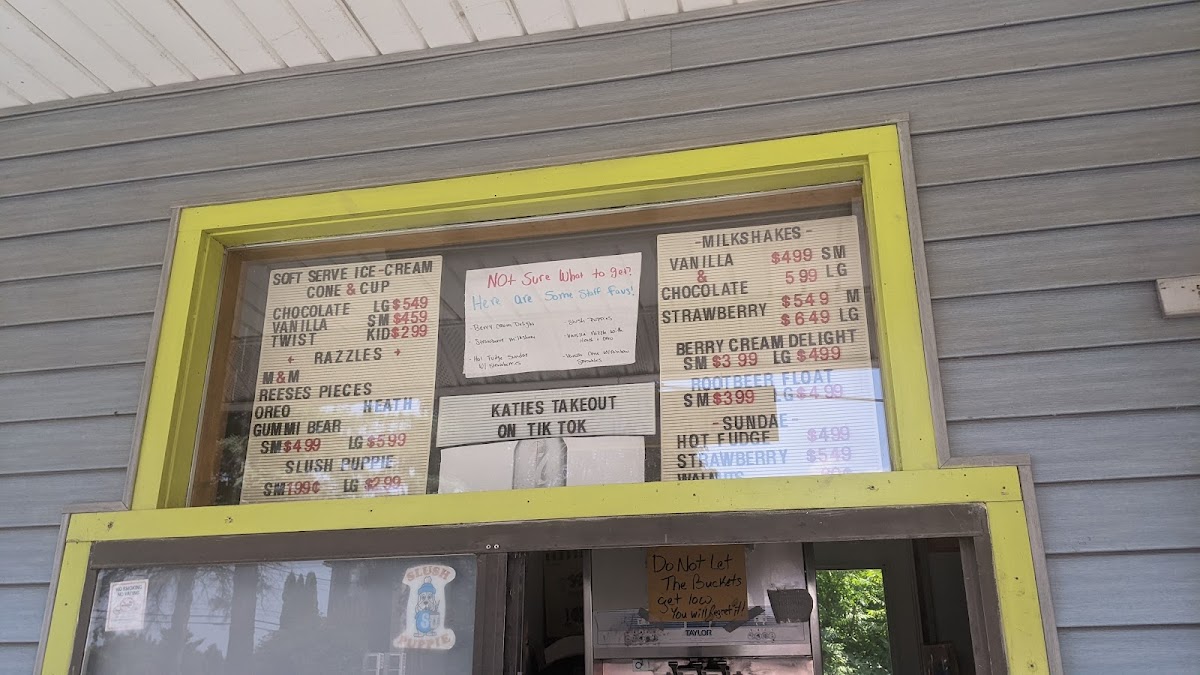 SOFT SERVE ICE-CREAM
CONE & CUP
CHOCOLATE LG $549
VANILLA SM $459
TWIST KID $2.99
← RAZZLES →
M&M
REESES PIECES
OREO HEATH
GUMMI BEAR
SM $4.99 LG $5.99
SLUSH PUPPIE
SM 1.99¢ LG $2.99
NOt Sure What to get?
Here are Some Staff favs!
- Berry Cream Delight
- Strawberry Milkshake
- Hot Fudge Sundae
W/ Strawberries
- Slush Puppies
- Vanilla Razzle with
- Vanilla Cone W/Rainbow
Sprinkles
KATIES TAKEOUT
ON TIK TOK
-MILKSHAKES-
VANILLA $499 SM
& 5 99 LG
CHOCOLATE
STRAWBERRY $549 M
$6.49 LG
BERRY CREAM DELIGHT
SM $3 99 LG $499
ROOTBEER FLOAT
SM $3.99 LG $4.99
-SUNDAE-
HOT FUDGE $499
STRAWBERRY $549
WALNUS
SLUSH
PUPPIE
Do Not Let
The Buckets
get low
You will Regret it!
TAYLOR